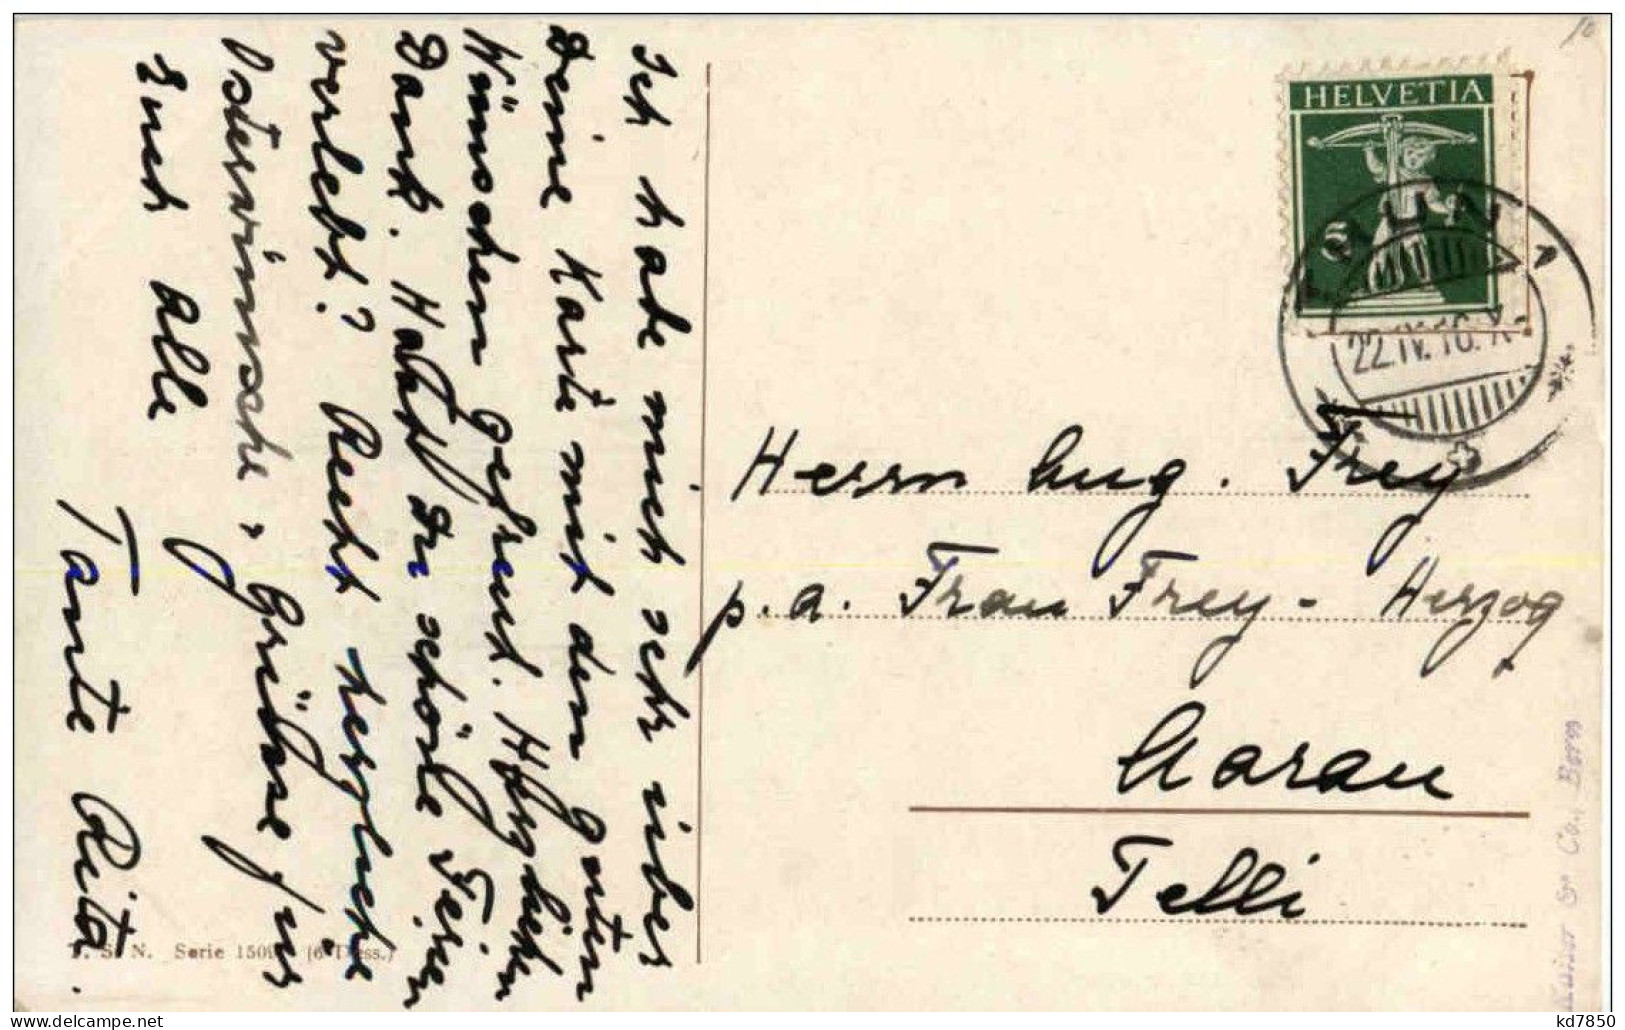 Ich habe mich sehr über
Deine Karte mit den guten
Wünschen gefreut. Herzlichen
Dank. Hattest Du schöne Ferien
verlebt? Recht herzliche
Osterwünsche, Grüsse für
Euch alle
Tante Rita.
HELVETIA
5
22.IV.16.X
Herrn Aug. Frey
p.a. Frau Frey-Herzog
Aarau
Telli
S. N. Serie 150
Kaiser & Co., Bern
kd7850